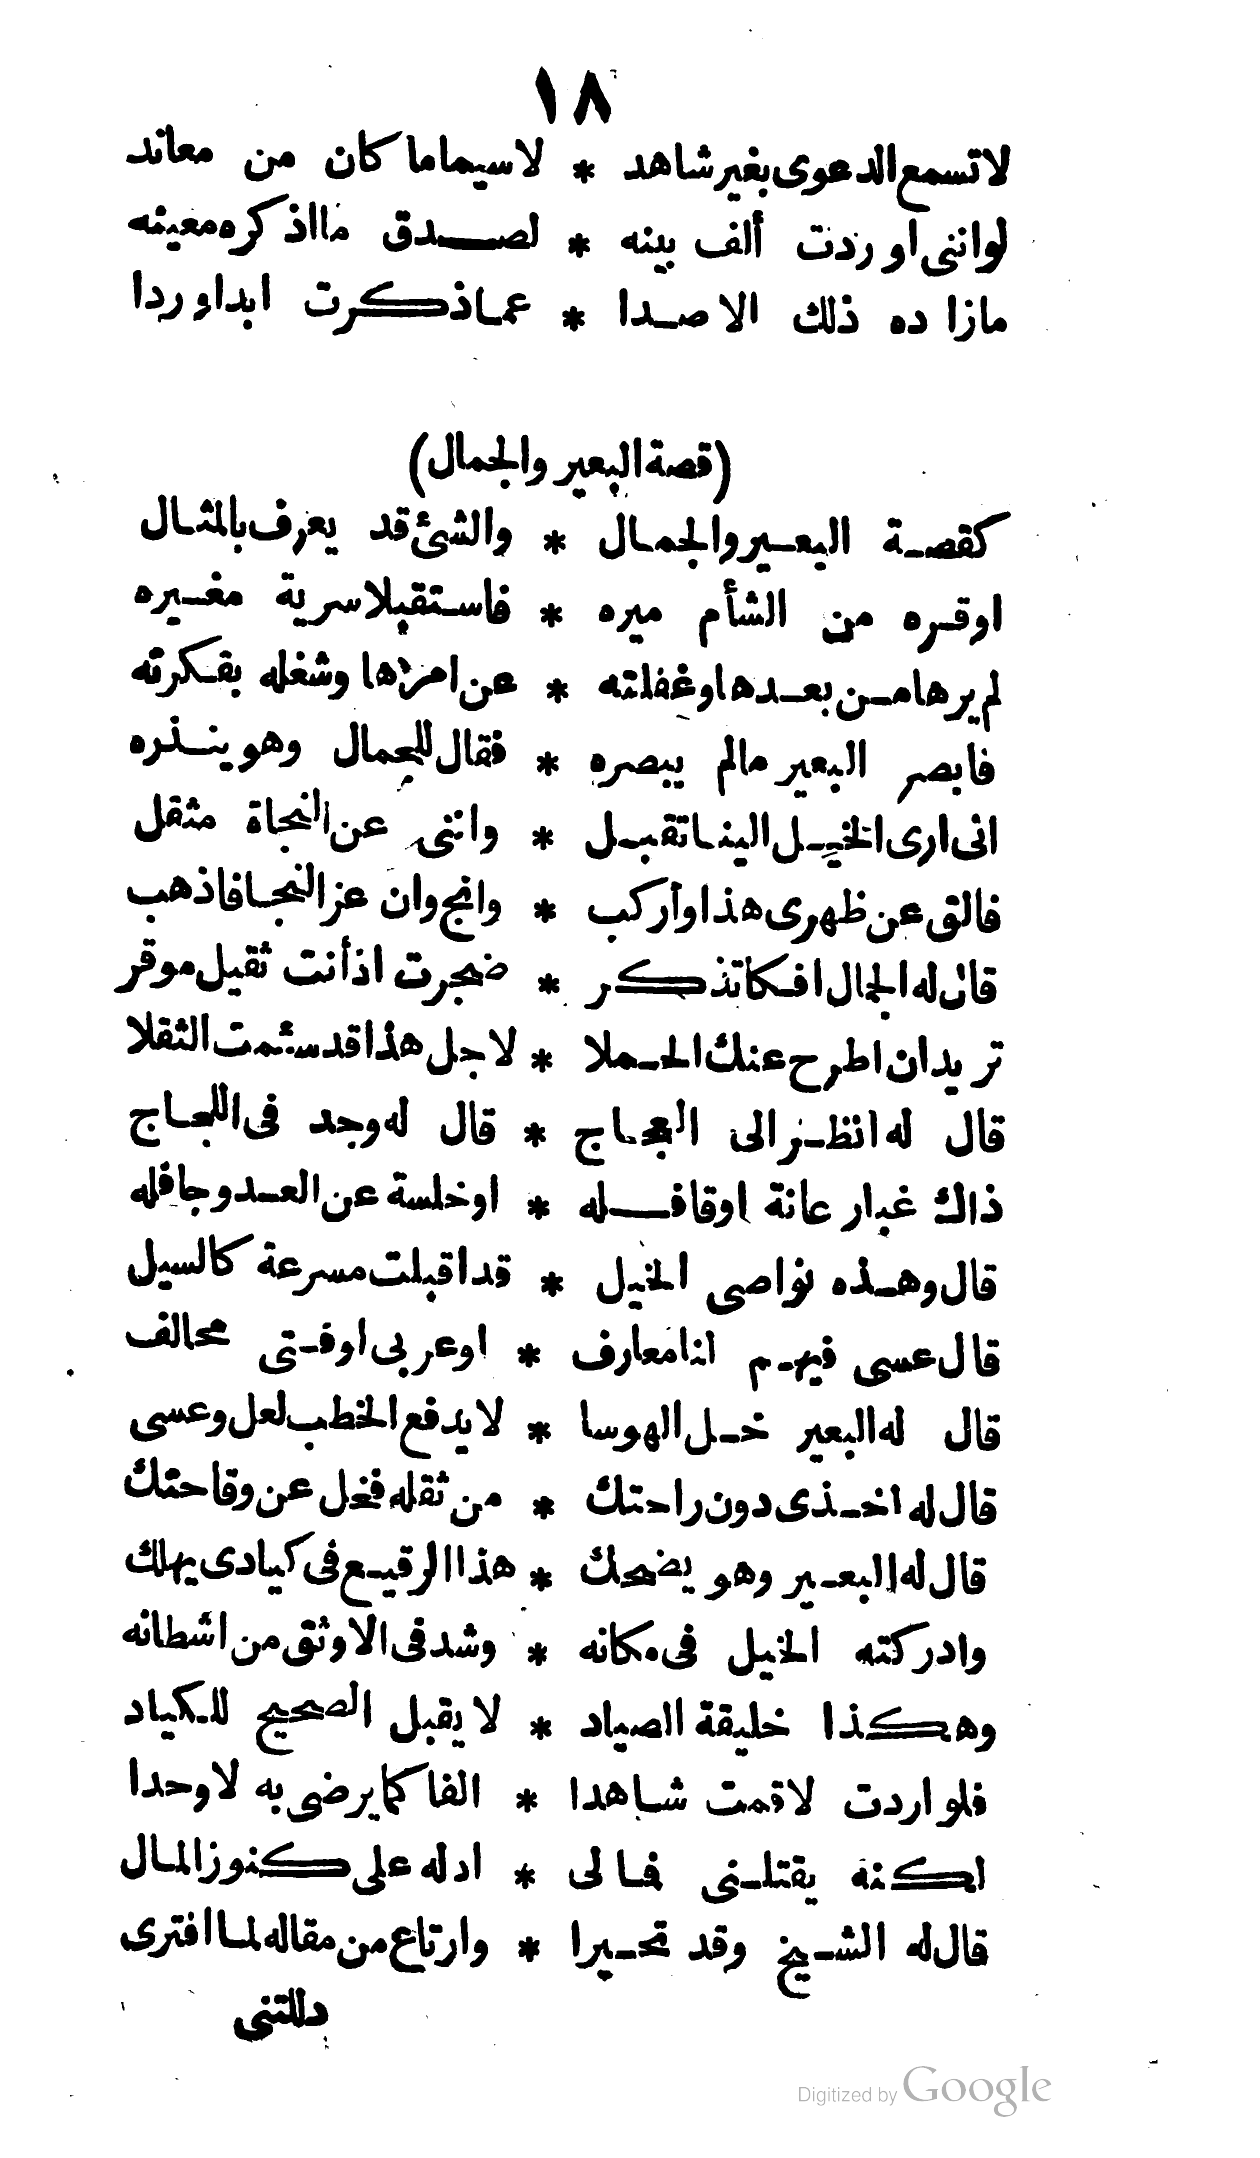 ١٨
لا تسمع الدعوى بغير شاهد * لا سيما ما كان من معاند
لو اننى اوردت ألف بينه * لصدق ما اذكره معينه
ما زاده ذلك الا صدا * عما ذكرت ابدا وردا
(قصة البعير والجمال)
كقصة البعير والجمال * والشئ قد يعرف بالمثال
اوقره من الشأم ميره * فاستقبلا سرية مغيره
لم يرها من بعدها وغفلته * عن امرها وشغله بفكرته
فابصر البعير مالم يبصره * فقال للجمال وهو ينذره
انى ارى الخيل الينا تقبل * واننى عن النجاة مثقل
فالق عن ظهرى هذا وأركب * وانج وان عز النجا فاذهب
قال له الجمال افكا تذكر * ضجرت اذ أنت ثقيل موقر
تريد ان اطرح عنك الحملا * لاجل هذا قد سئمت الثقلا
قال له انظر الى العجاج * قال له وجد فى اللجاج
ذاك غبار عانة او قافله * او خلسة عن العدو جافله
قال وهذه نواصى الخيل * قد اقبلت مسرعة كالسيل
قال عسى فيهم انا معارف * او عربى او فتى محالف
قال له البعير خل الهوسا * لا يدفع الخطب لعل وعسى
قال له اخذى دون راحتك * من ثقله فخل عن وقاحتك
قال له البعير وهو يضحك * هذا الرقيع فى كيادى يهلك
وادركته الخيل فى مكانه * وشد فى الاوثق من اشطانه
وهكذا خليقة الصياد * لا يقبل الصحيح للكياد
فلو اردت لاقمت شاهدا * الفا كما يرضى به لا وحدا
لكنه يقتلنى فمالى * ادله على كنوز المال
قال له الشيخ وقد تحيرا * وارتاع من مقاله لما افترى
دللتنى
Digitized by Google